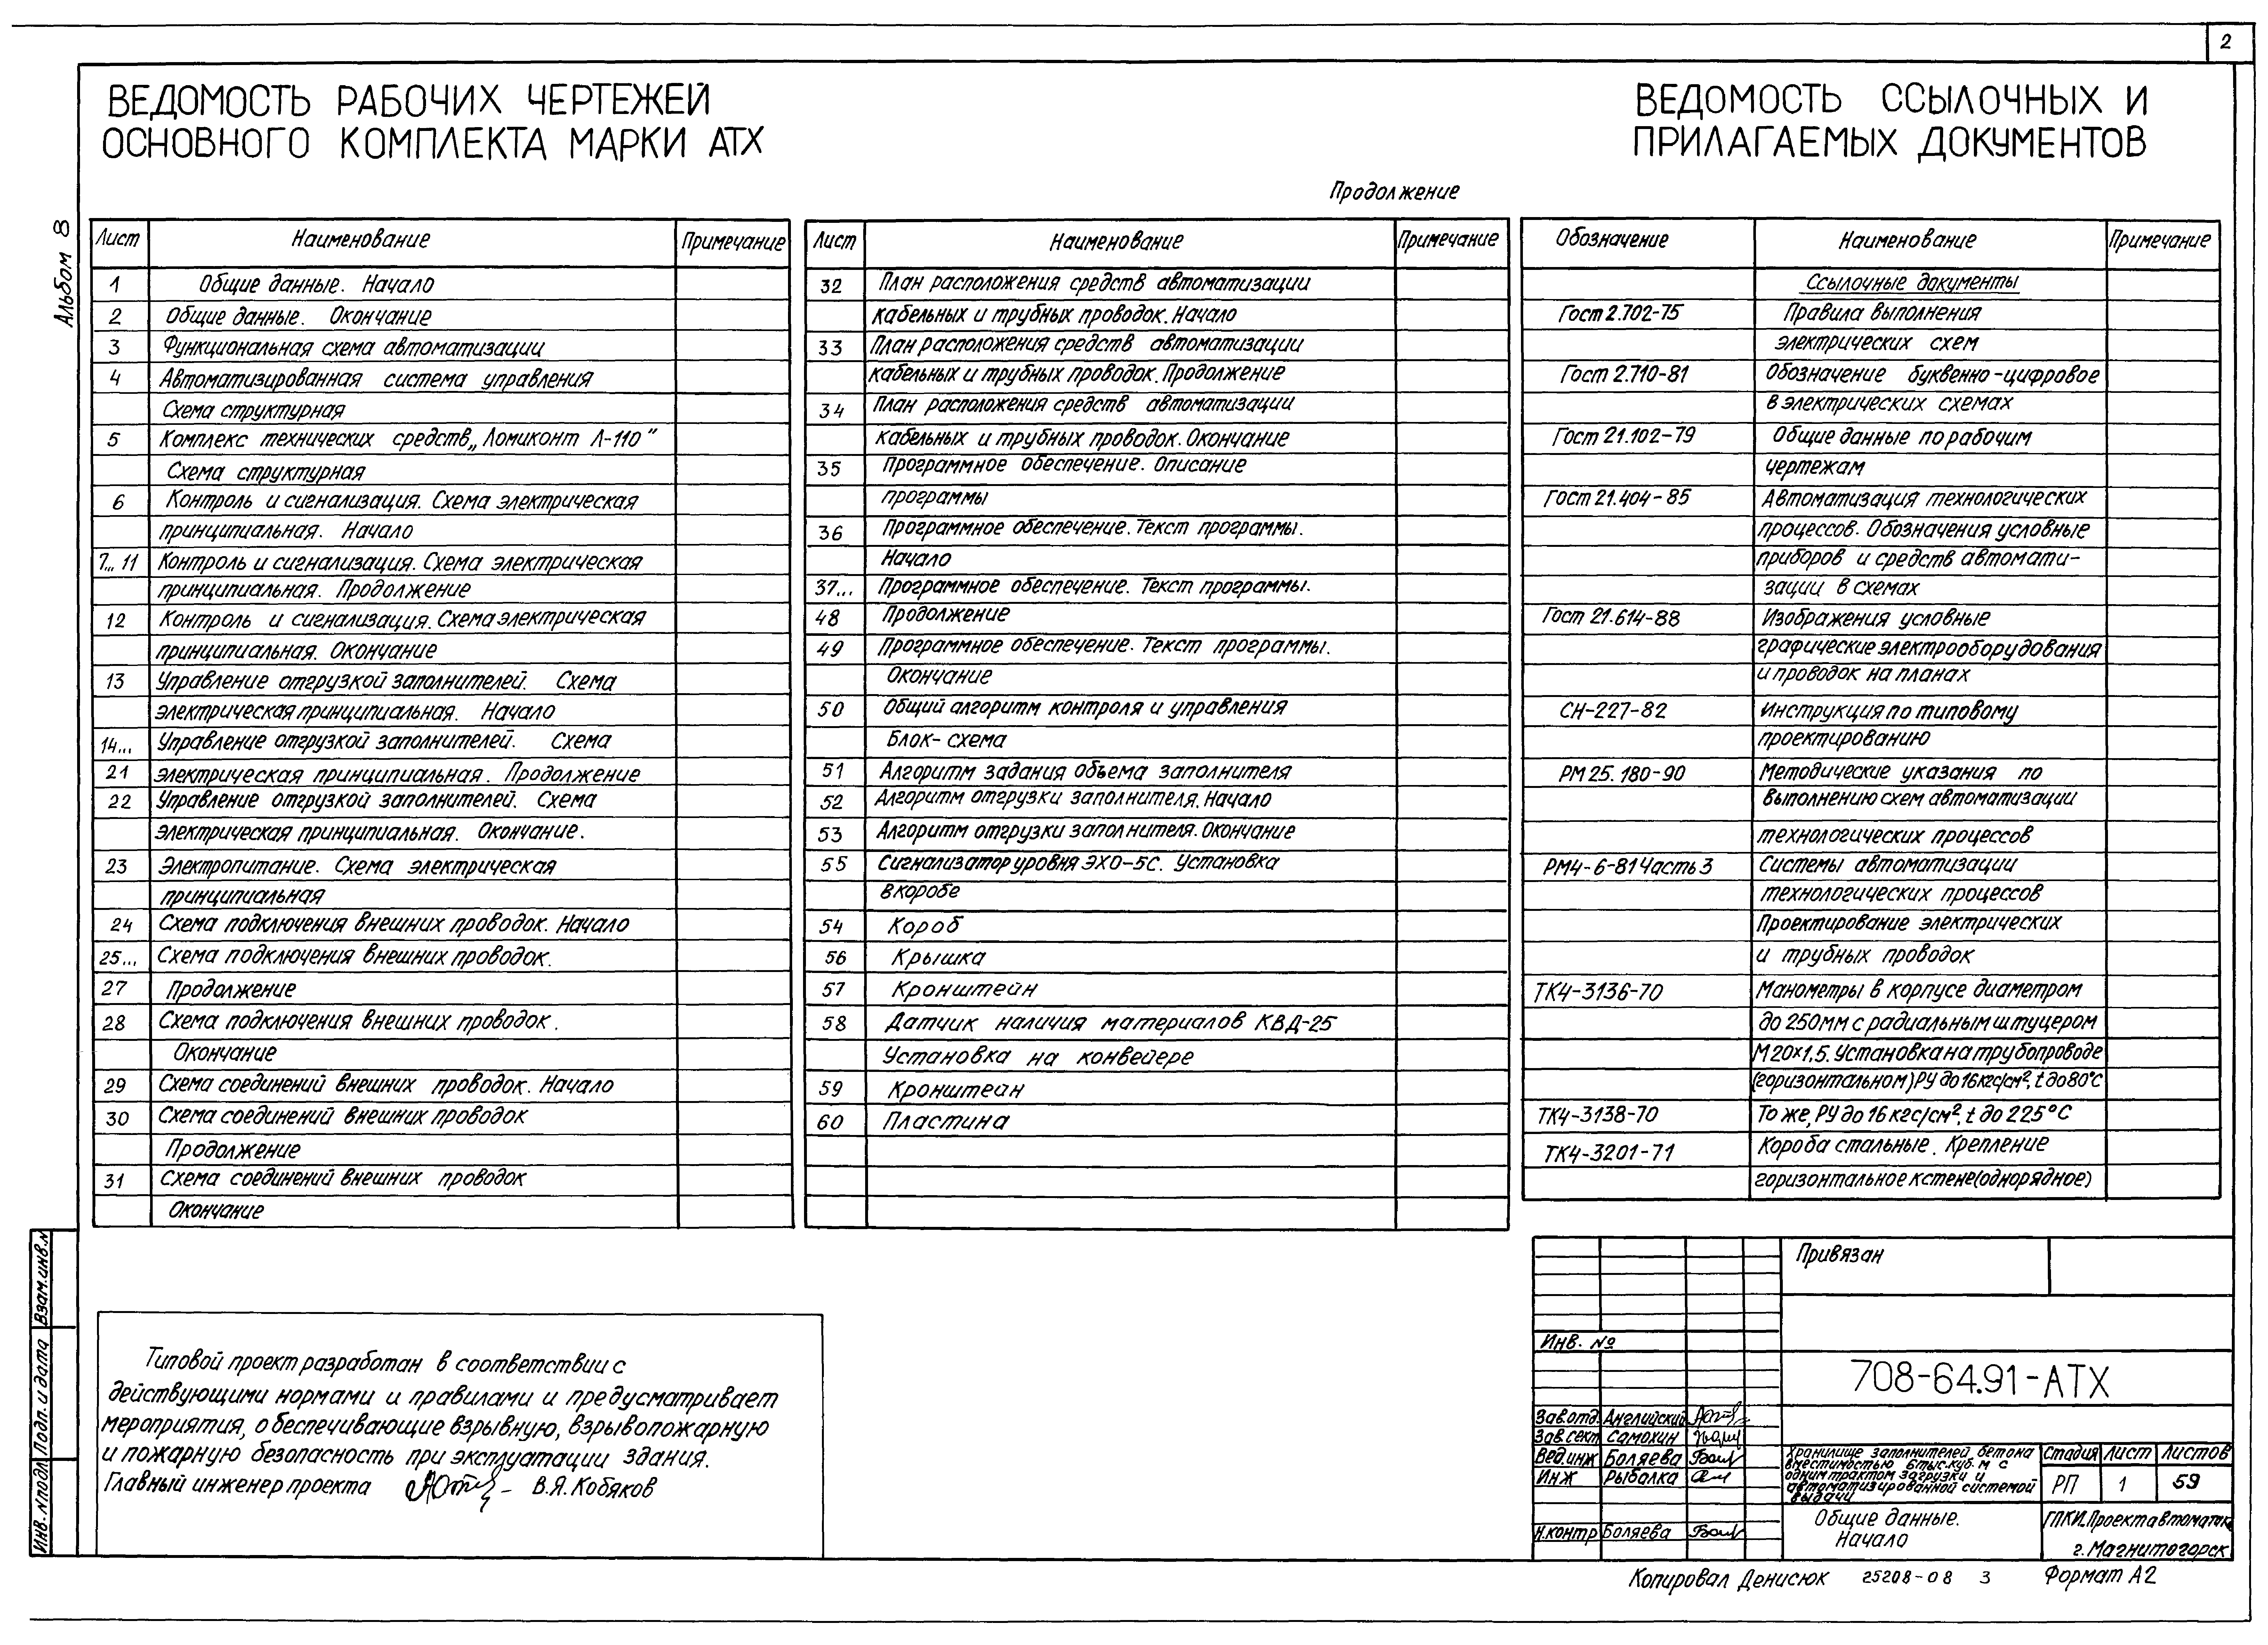 2
ВЕДОМОСТЬ РАБОЧИХ ЧЕРТЕЖЕЙ
ОСНОВНОГО КОМПЛЕКТА МАРКИ АТХ
ВЕДОМОСТЬ ССЫЛОЧНЫХ И
ПРИЛАГАЕМЫХ ДОКУМЕНТОВ
Продолжение
Альбом 8
Лист Наименование Примечание
1 Общие данные. Начало
2 Общие данные. Окончание
3 Функциональная схема автоматизации
4 Автоматизированная система управления
Схема структурная
5 Комплекс технических средств „Ломиконт Л-110"
Схема структурная
6 Контроль и сигнализация. Схема электрическая
принципиальная. Начало
7... 11 Контроль и сигнализация. Схема электрическая
принципиальная. Продолжение
12 Контроль и сигнализация. Схема электрическая
принципиальная. Окончание
13 Управление отгрузкой заполнителей. Схема
электрическая принципиальная. Начало
14... Управление отгрузкой заполнителей. Схема
21 электрическая принципиальная. Продолжение
22 Управление отгрузкой заполнителей. Схема
электрическая принципиальная. Окончание.
23 Электропитание. Схема электрическая
принципиальная
24 Схема подключения внешних проводок. Начало
25... Схема подключения внешних проводок.
27 Продолжение
28 Схема подключения внешних проводок.
Окончание
29 Схема соединений внешних проводок. Начало
30 Схема соединений внешних проводок
Продолжение
31 Схема соединений внешних проводок
Окончание
Лист Наименование Примечание
32 План расположения средств автоматизации
кабельных и трубных проводок. Начало
33 План расположения средств автоматизации
кабельных и трубных проводок. Продолжение
34 План расположения средств автоматизации
кабельных и трубных проводок. Окончание
35 Программное обеспечение. Описание
программы
36 Программное обеспечение. Текст программы.
Начало
37... Программное обеспечение. Текст программы.
48 Продолжение
49 Программное обеспечение. Текст программы.
Окончание
50 Общий алгоритм контроля и управления
Блок-схема
51 Алгоритм задания объема заполнителя
52 Алгоритм отгрузки заполнителя. Начало
53 Алгоритм отгрузки заполнителя. Окончание
55 Сигнализатор уровня ЭХО-5С. Установка
в коробе
54 Короб
56 Крышка
57 Кронштейн
58 Датчик наличия материалов КВД-25
Установка на конвейере
59 Кронштейн
60 Пластина
Обозначение Наименование Примечание
Ссылочные документы
Гост 2.702-75 Правила выполнения
электрических схем
Гост 2.710-81 Обозначение буквенно-цифровое
в электрических схемах
Гост 21.102-79 Общие данные по рабочим
чертежам
Гост 21.404-85 Автоматизация технологических
процессов. Обозначения условные
приборов и средств автомати-
зации в схемах
Гост 21.614-88 Изображения условные
графические электрооборудования
и проводок на планах
СН-227-82 Инструкция по типовому
проектированию
РМ 25.180-90 Методические указания по
выполнению схем автоматизации
технологических процессов
РМ4-6-81 Часть 3 Системы автоматизации
технологических процессов
Проектирование электрических
и трубных проводок
ТК4-3136-70 Манометры в корпусе диаметром
до 250мм с радиальным штуцером
М 20×1,5. Установка на трубопроводе
(горизонтальном) РУ до 16кгс/см², t до 80°С
ТК4-3138-70 То же, РУ до 16 кгс/см², t до 225°С
ТК4-3201-71 Короба стальные. Крепление
горизонтальное к стене (однорядное)
Типовой проект разработан в соответствии с
действующими нормами и правилами и предусматривает
мероприятия, обеспечивающие взрывную, взрывопожарную
и пожарную безопасность при эксплуатации здания.
Главный инженер проекта В.Я. Кобяков
Взам. инв. №
Подп. и дата
Инв. № подл
Привязан
Инв. №
708-64.91-АТХ
Зав.отд. Английский
Зав.сект Самохин
Вед.инж Боляева
Инж Рыбалка
Н.контр Боляева
Хранилище заполнителей бетона
вместимостью 6 тыс.куб. м с
одним трактом загрузки и
автоматизированной системой
выдачи
Стадия Лист Листов
РП 1 59
Общие данные.
Начало
ГПКИ Проектавтоматика
г. Магнитогорск
Копировал Денисюк 25208-08 3 Формат А2